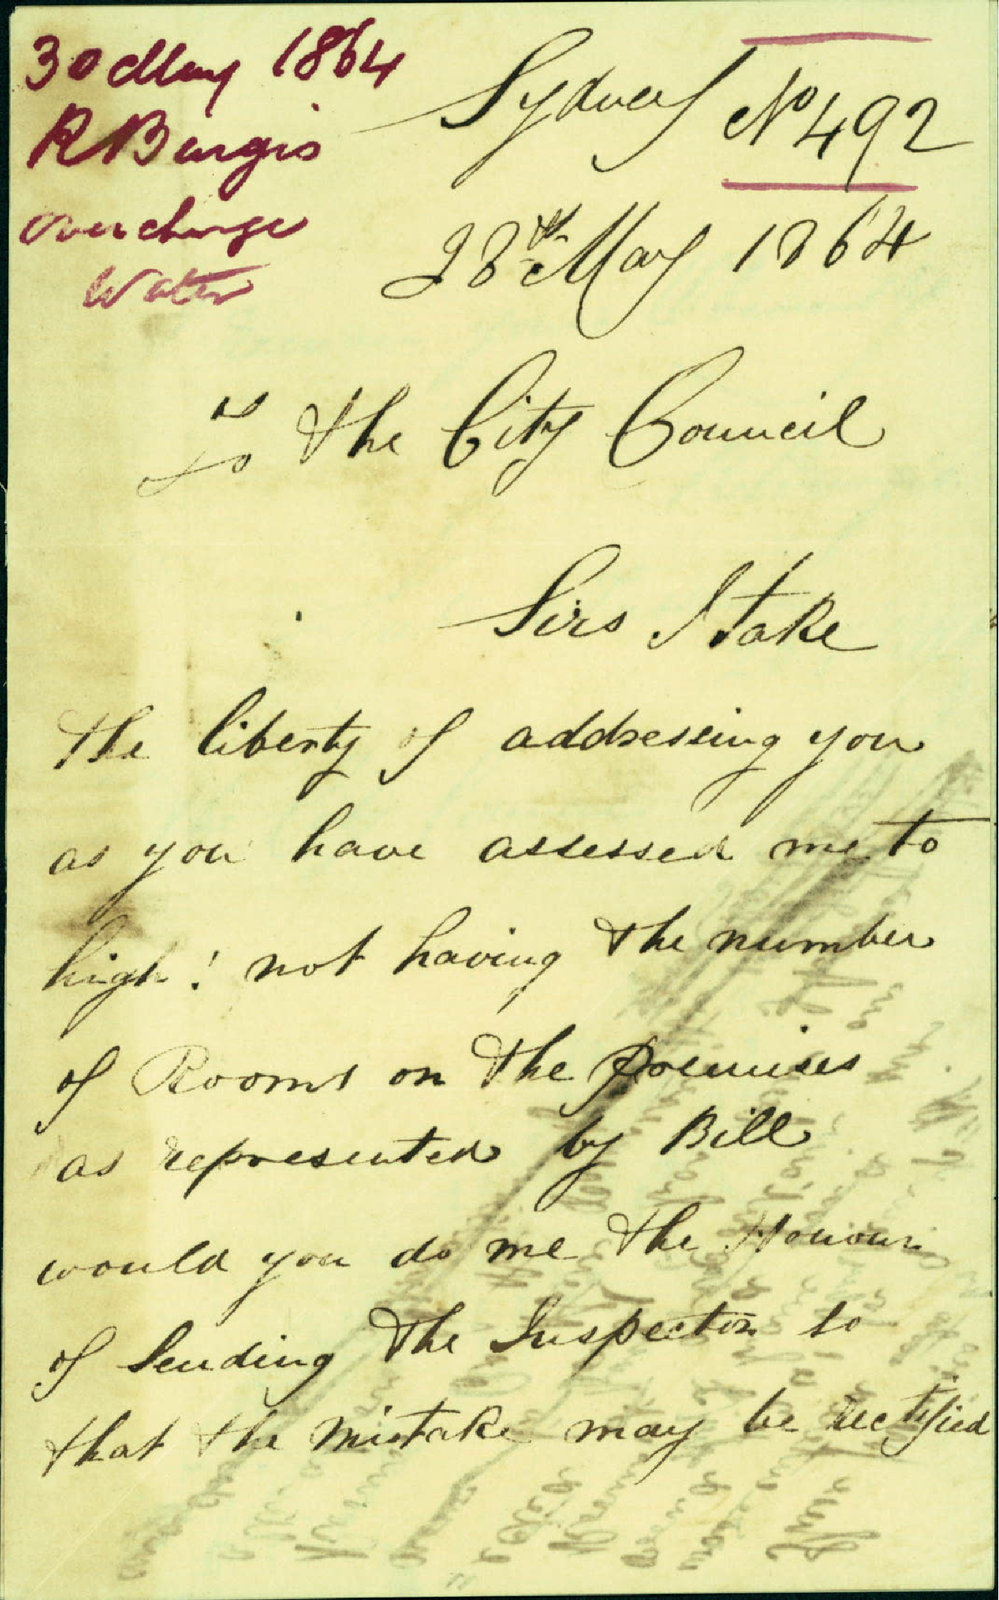 30 May 1864
R Burgis
overcharge
Water
Sydney No 492
28th May 1864
To the City Council
Sirs I take
the liberty of addressing you
as you have assessed me to
high! not having the number
of Rooms on the premises
as represented by Bill
would you do me the Honour
of sending the Inspector so
that the mistake may be rectified